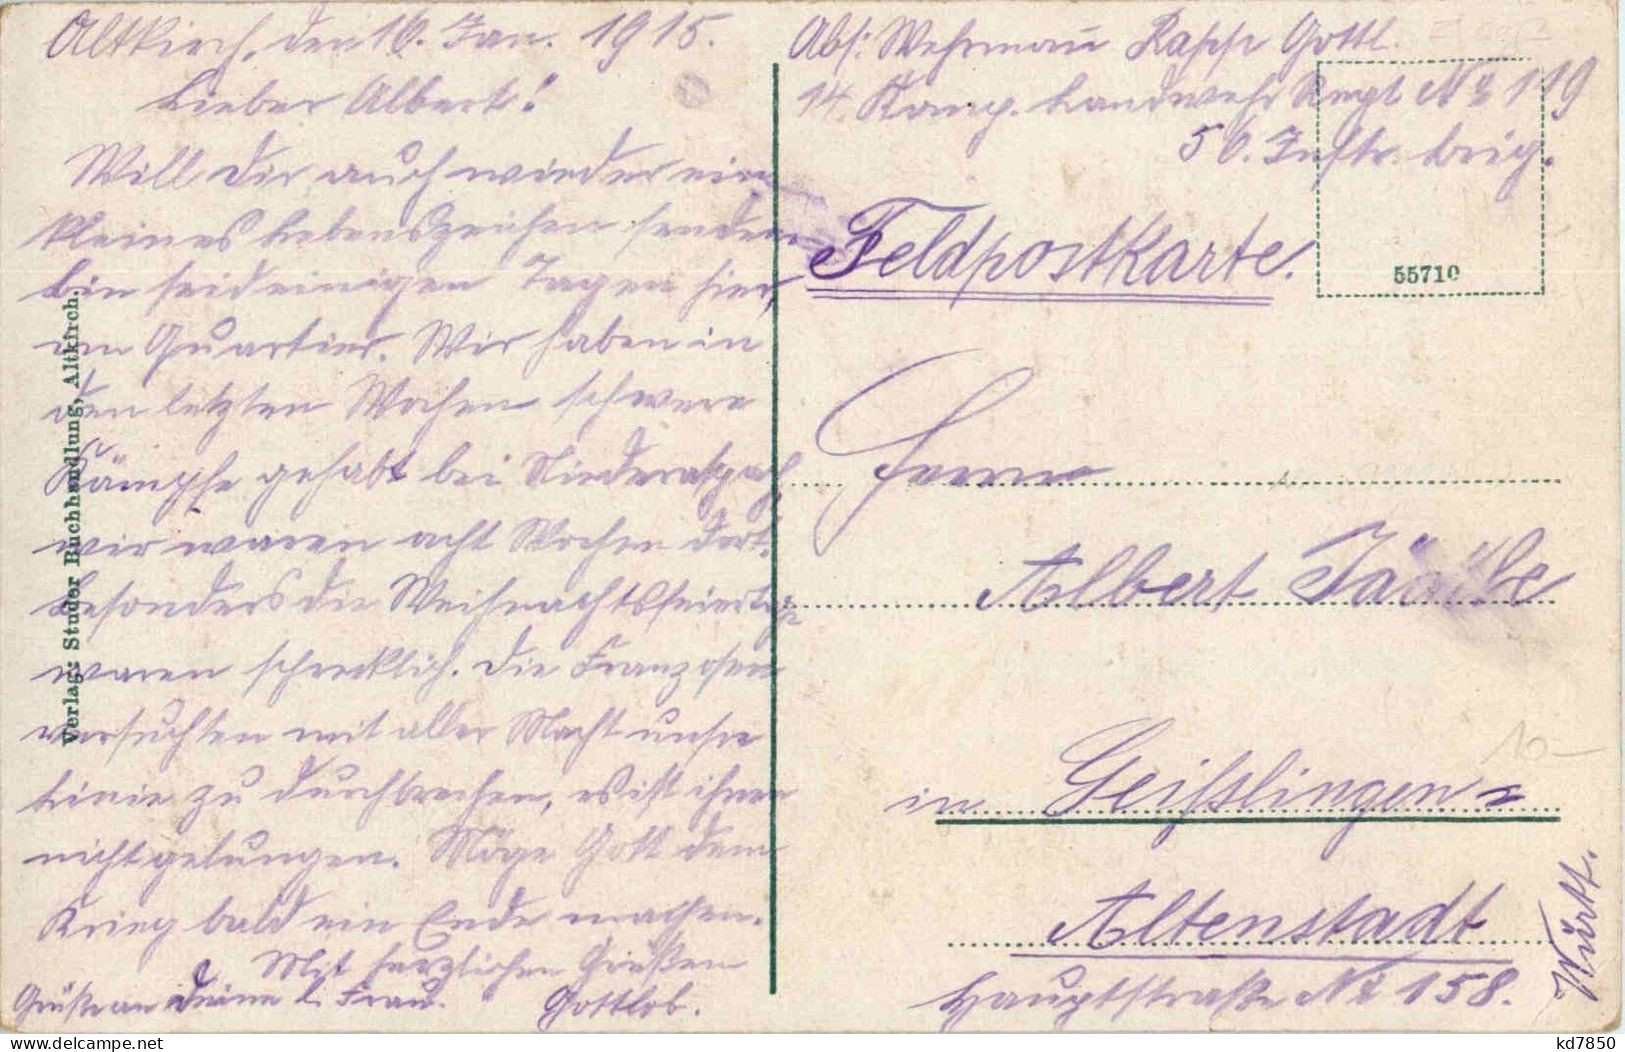 Altkirch, den 16. Jan. 1915.
Lieber Albert!
Will dir auch wieder ein
kleines Lebenszeichen senden
bin seid einigen Tagen hier,
im Quartier. Wir haben in
den letzten Wochen schwere
Kämpfe gehabt bei Niederaspach,
wir waren acht Wochen dort.
besonders die Weihnachtsfeiertage
waren schrecklich. die Franzosen
versuchten mit aller Macht unsre
Linie zu durchbrechen, es ist ihnen
nicht gelungen. Möge Gott dem
Krieg bald ein Ende machen.
Mit herzlichen Grüßen
Grüße an deine l. Frau. Gottlob.
Verlag: Studer Buchhandlung, Altkirch.
Abs: Wehrmann Rapp Gottl.
14. Komp. Landwehr Regt. No 119
56. Inftr. brig.
Feldpostkarte.
55710
Herrn
Albert
in Geisslingen
Altenstadt
Hauptstraße No 158.
Württ.
10-
kd7850